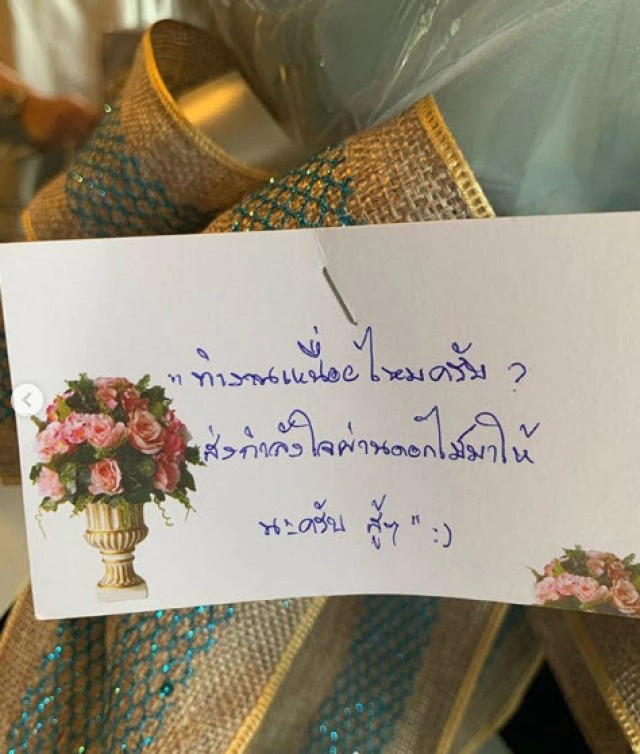 "ทำงานเหนื่อยไหมครับ ?
ส่งกำลังใจผ่านดอกไม้มาให้
นะครับ สู้ๆ" :)